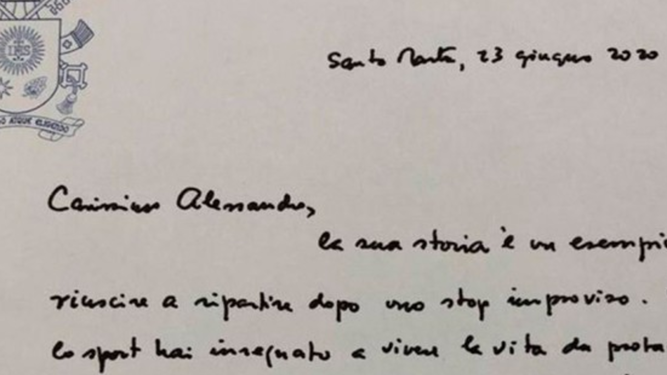 IHS
ATQUE ELIGENDO
Santa Marta, 23 giugno 2020
Carissimo Alessandro,
la sua storia è un esempio
riuscire a ripartire dopo uno stop improvviso.
lo sport hai insegnato a vivere la vita da prota